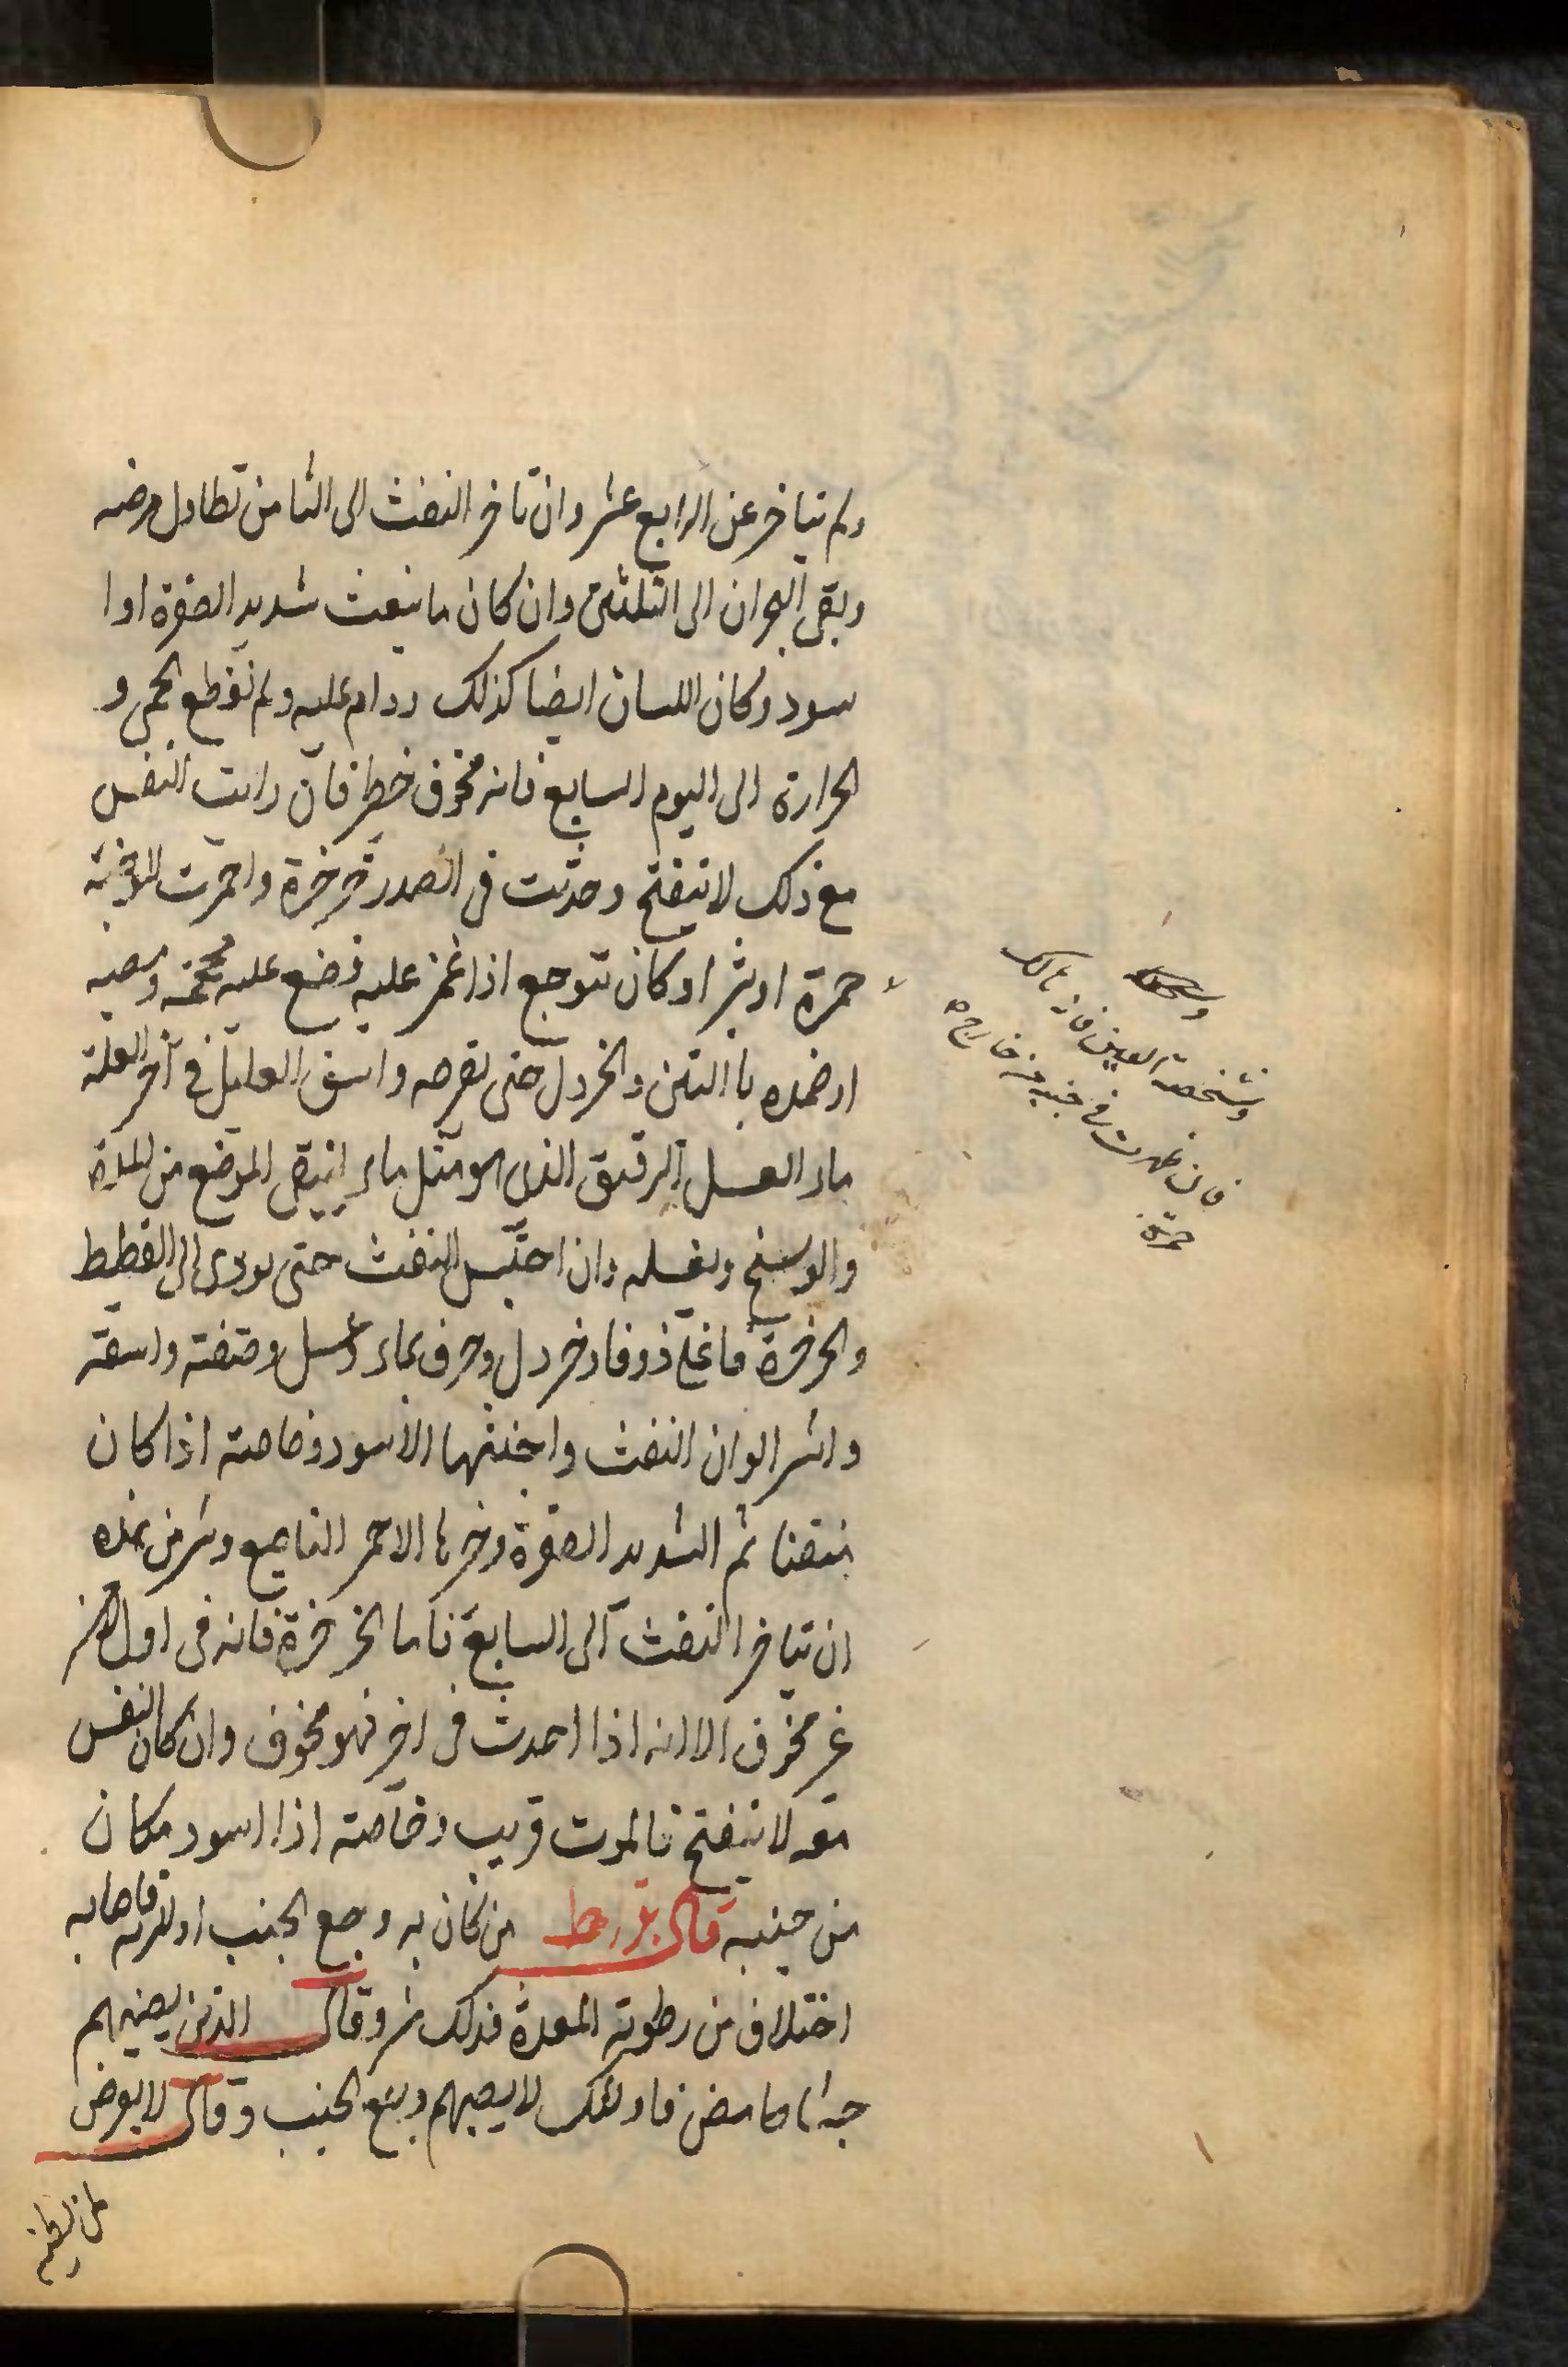 ولم يتاخر عن الرابع عشر وان تاخر النفث الى الثامن تطاول مرضه
وبقى البحران الى الثلثين وان كان ما ينفث شديد الصفرة اوا
سود وكان اللسان ايضا كذلك ودام عليه ولم تقطع الحمى و
الحرارة الى اليوم السابع فانه مخوف خطر فان رايت النفس
مع ذلك لا ينفتح وحدثت فى الصدر خرخرة واحمرت الوجنة
حمرة او بثر او كان يتوجع اذا غمز عليه فضع عليه محجمة ومصه
او ضمده باالتين والخردل حتى تقرحه واسق العليل فى آخر العلة
ماء العسل الرقيق الذى هو مثل ماء لينقى الموضع من المدة
والوسخ ويغسله وان احتبس النفث حتى يودى الى الغطيط
والخرخرة فاغلى زوفا وخردل وحرف بماء وعسل وصفته واسقه
واشر الوان النفث واخبثها الاسود وخاصة اذا كان
منتنا ثم الشديد الصفرة وخيرها الاحمر الناصع وشر من هذه
ان يتاخر النفث الى السابع فاما الخرخرة فانه فى اول
غير مخوف الا انه اذا احدث فى اخر فهو مخوف وان كان النفس
معه لا ينفتح فالموت قريب وخاصة اذا اسود مكان
من جنبه قال بقراط من كان به وجع الجنب او الرية فاصابه
اختلاف من رطوبة المعدة فذلك شر وقال الذين يصيبهم
جشاء حامض فاولئك لا يصيبهم وجع الجنب وقال لا يعرض
وشخصت العين فانه هالك
فان ظهرت فى جنبه من خارج
حمرة